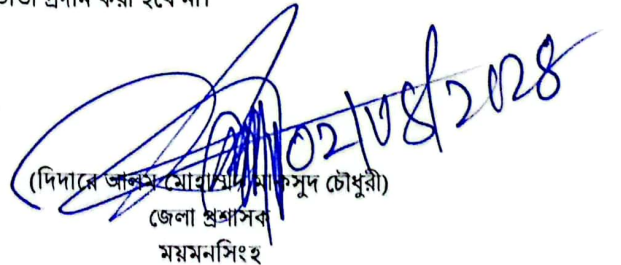 ভাতা প্রদান করা হবে না।
০২/০৪/২০২৪
(দিদারে আলম মোহাম্মদ মাকসুদ চৌধুরী)
জেলা প্রশাসক
ময়মনসিংহ